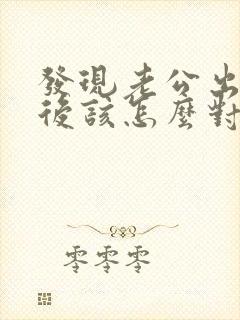 發現老公出
後該怎麼對
零零零